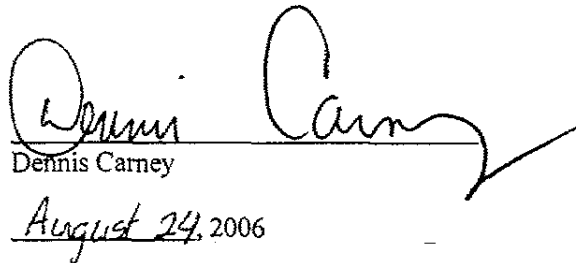 Dennis Carney
Dennis Carney
August 24, 2006